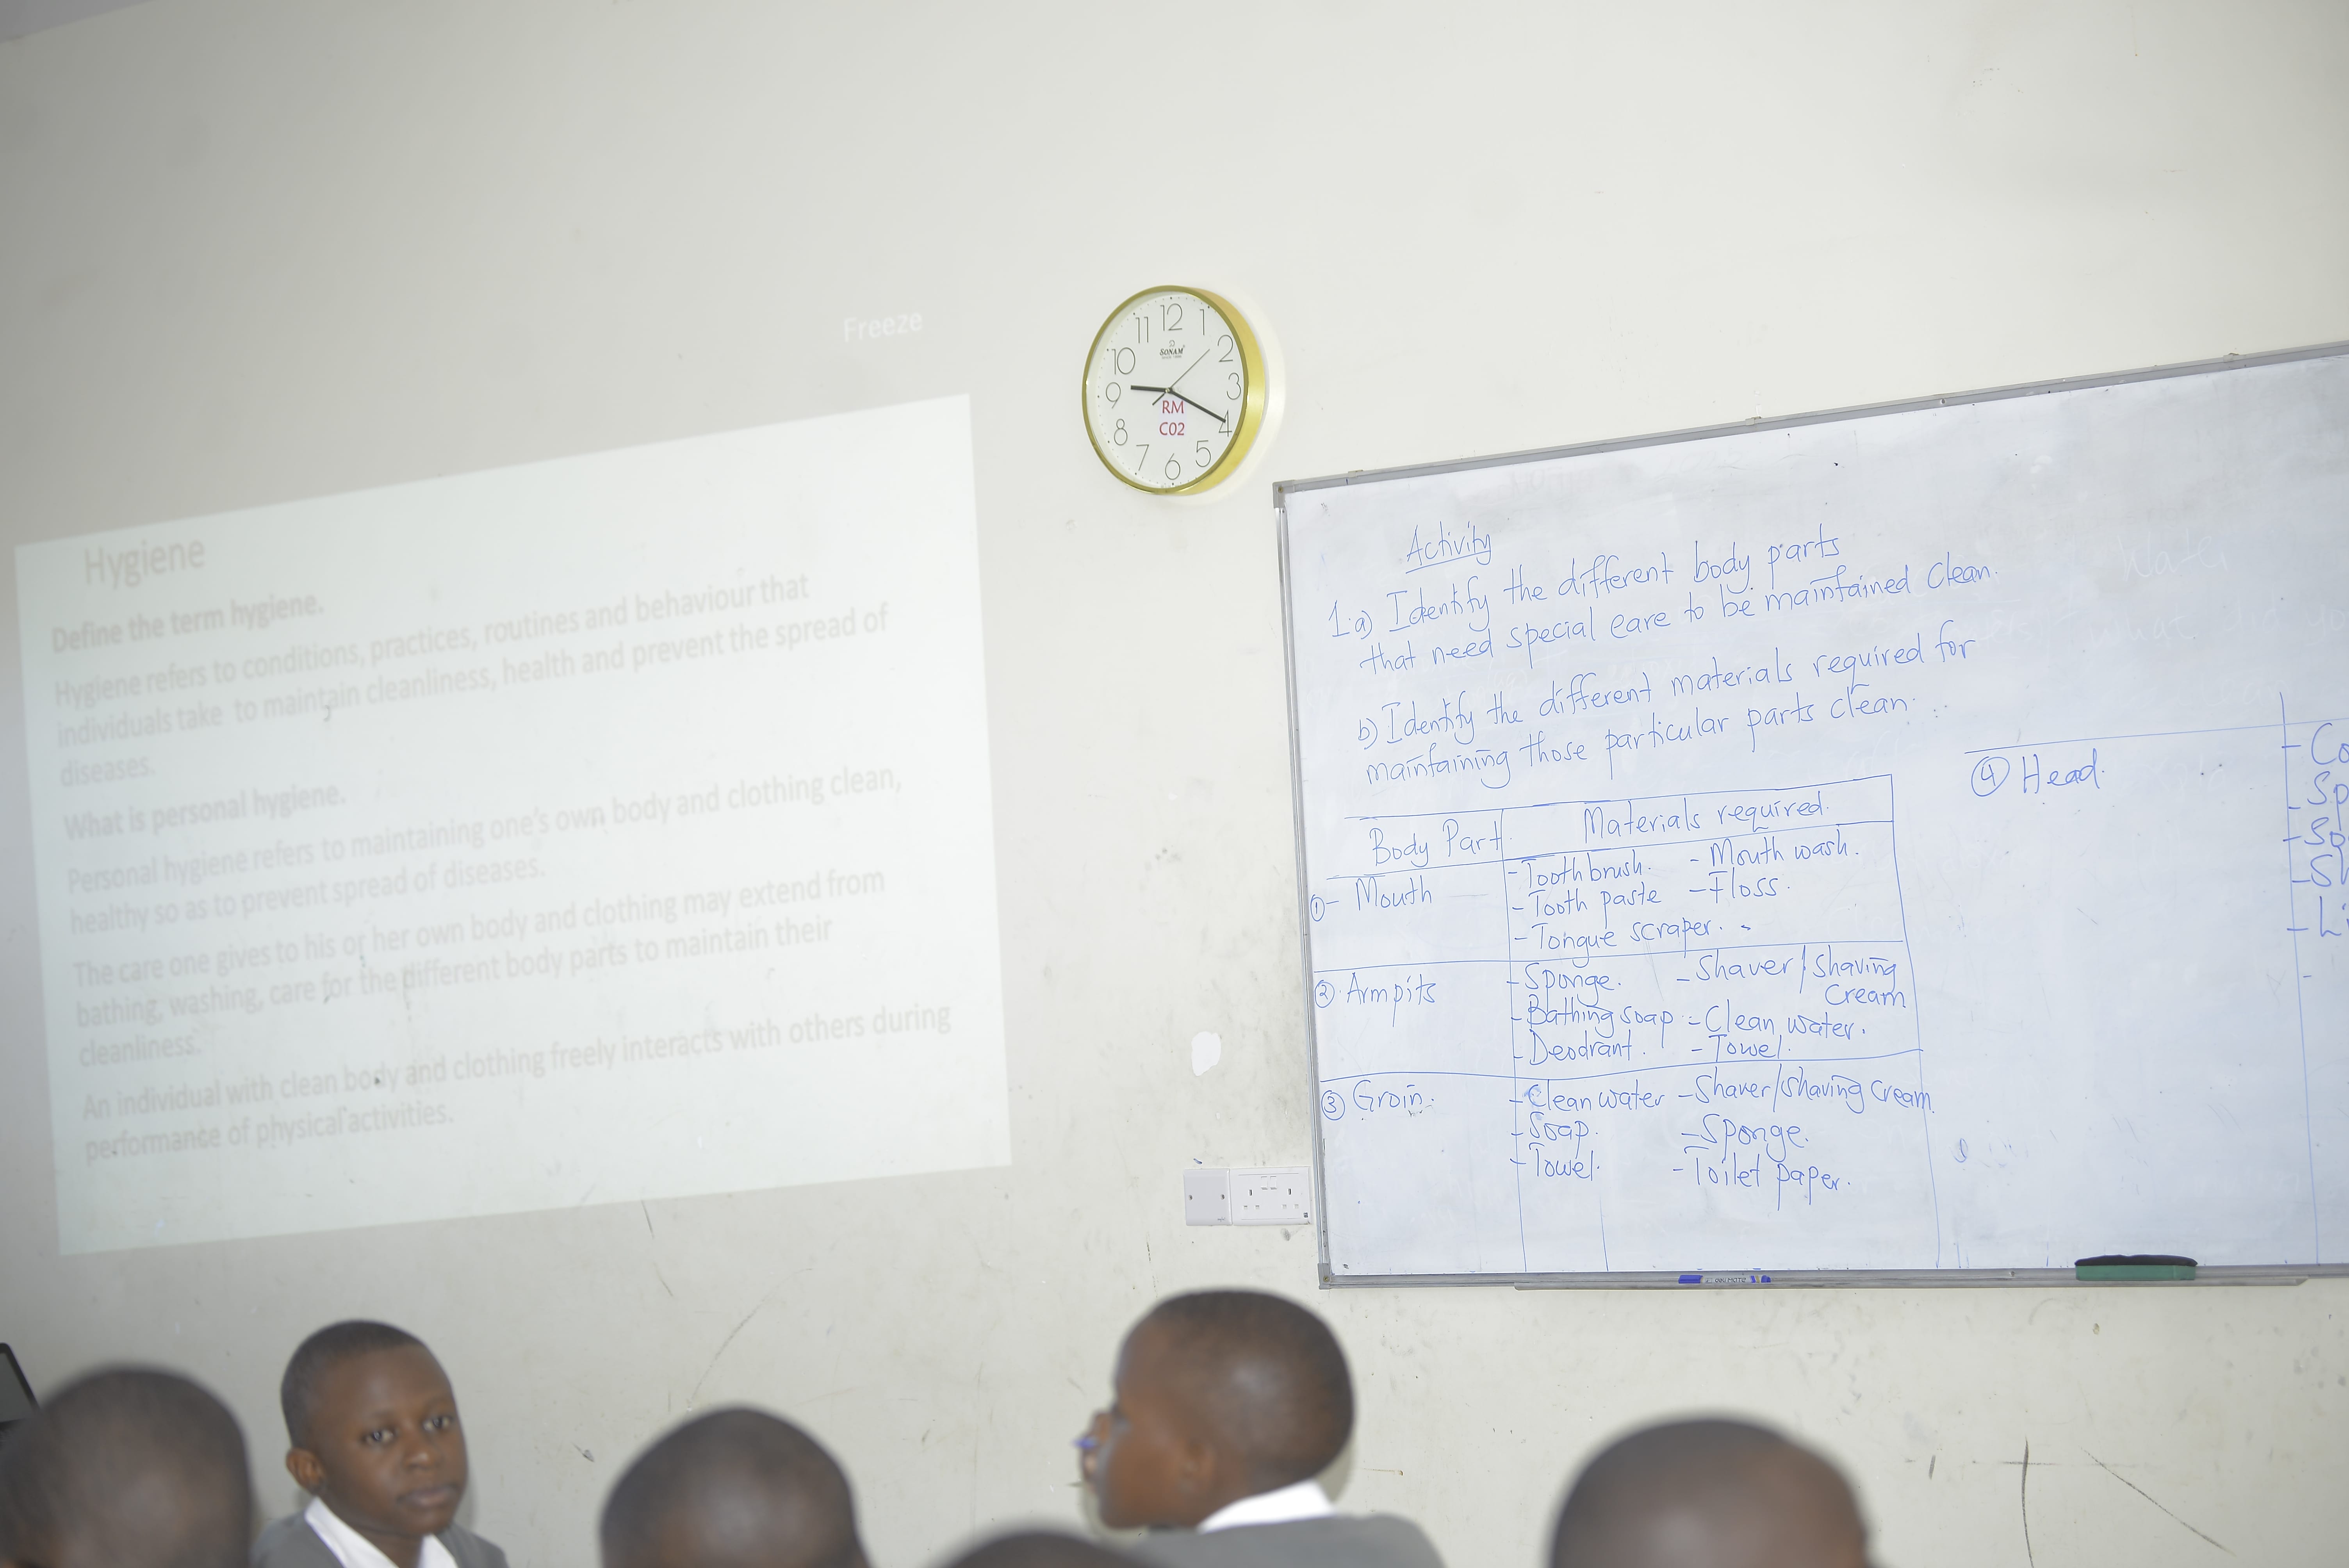 Freeze
Hygiene
Define the term hygiene.
Hygiene refers to conditions, practices, routines and behaviour that
individuals take to maintain cleanliness, health and prevent the spread of
diseases.
What is personal hygiene.
Personal hygiene refers to maintaining one's own body and clothing clean,
healthy so as to prevent spread of diseases.
The care one gives to his or her own body and clothing may extend from
bathing, washing, care for the different body parts to maintain their
cleanliness.
An individual with clean body and clothing freely interacts with others during
performance of physical activities.
12
1
2
3
4
5
6
7
8
9
10
11
SONAM
RM
C02
Activity
1.a) Identify the different body parts
that need special care to be maintained clean.
b) Identify the different materials required for
maintaining those particular parts clean.
Body Part Materials required.
① - Mouth
- Toothbrush. - Mouth wash.
- Tooth paste - Floss.
- Tongue scraper.
② Armpits
- Sponge. - Shaver/Shaving
Cream
- Bathing soap - Clean water.
- Deodrant. - Towel.
③ Groin.
- Clean water - Shaver/Shaving Cream.
- Soap. - Sponge.
- Towel. - Toilet paper.
④ Head.
- Co
- Sp
- So
- Sh
- Li